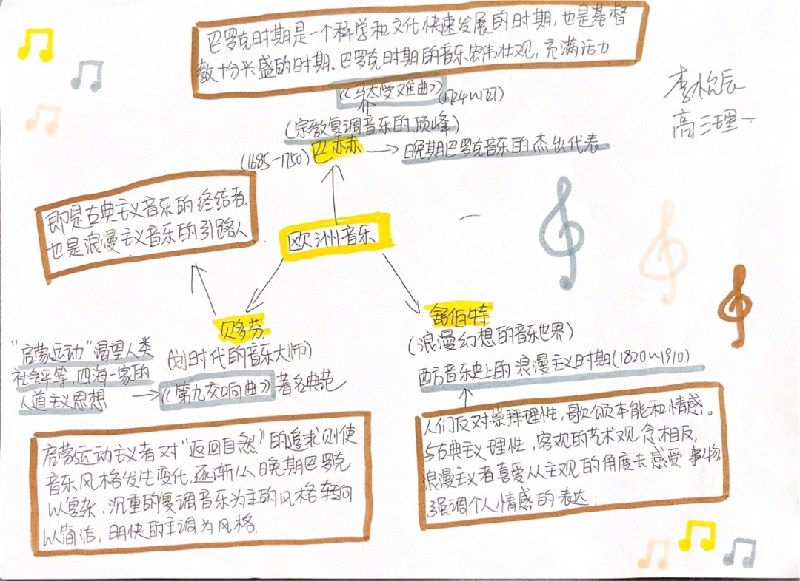 巴罗克时期是一个科学和文化快速发展的时期,也是基督
教十分兴盛的时期、巴罗克时期的音乐宏伟壮观,充满活力
《马太受难曲》
(宗教复调音乐的顶峰)
(1685-1750) 巴赫
晚期巴罗克音乐的杰出代表
李松辰
高三理一
即是古典主义音乐的终结者
也是浪漫主义音乐的引路人
欧洲音乐
贝多芬
(划时代的音乐大师)
《第九交响曲》著名典范
"启蒙运动"渴望人类
社会平等,四海一家的
人道主义思想
舒伯特
(浪漫幻想的音乐世界)
西方音乐史上的浪漫主义时期(1820~1910)
启蒙运动主义者对"返回自然"的追求则使
音乐风格发生变化,逐渐从晚期巴罗克
以繁杂、沉重的复调音乐为主的风格转向
以简洁,明快的主调为风格.
人们反对崇拜理性,歌颂本能和情感。
与古典主义理性,客观的艺术观念相反,
浪漫主义者喜爱从主观的角度去感受事物
强调个人情感的表达